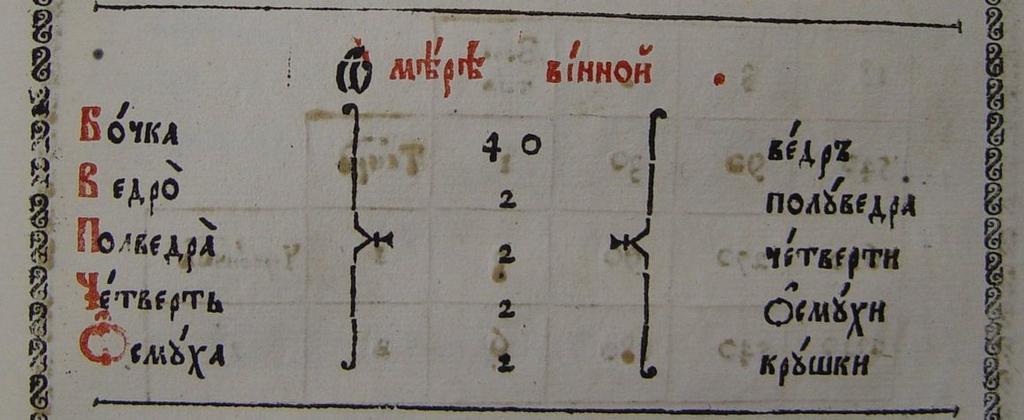 Ѿ мѣ́рѣ вїнной
Бо́чка 40 ве́дръ
Ведро̀ 2 полꙋ́ведра
Полведра̀ 2 че́тверти
Че́тверть 2 Ѻ҆смꙋ́хи
Ѻ҆смꙋ́ха 2 крꙋ́шки